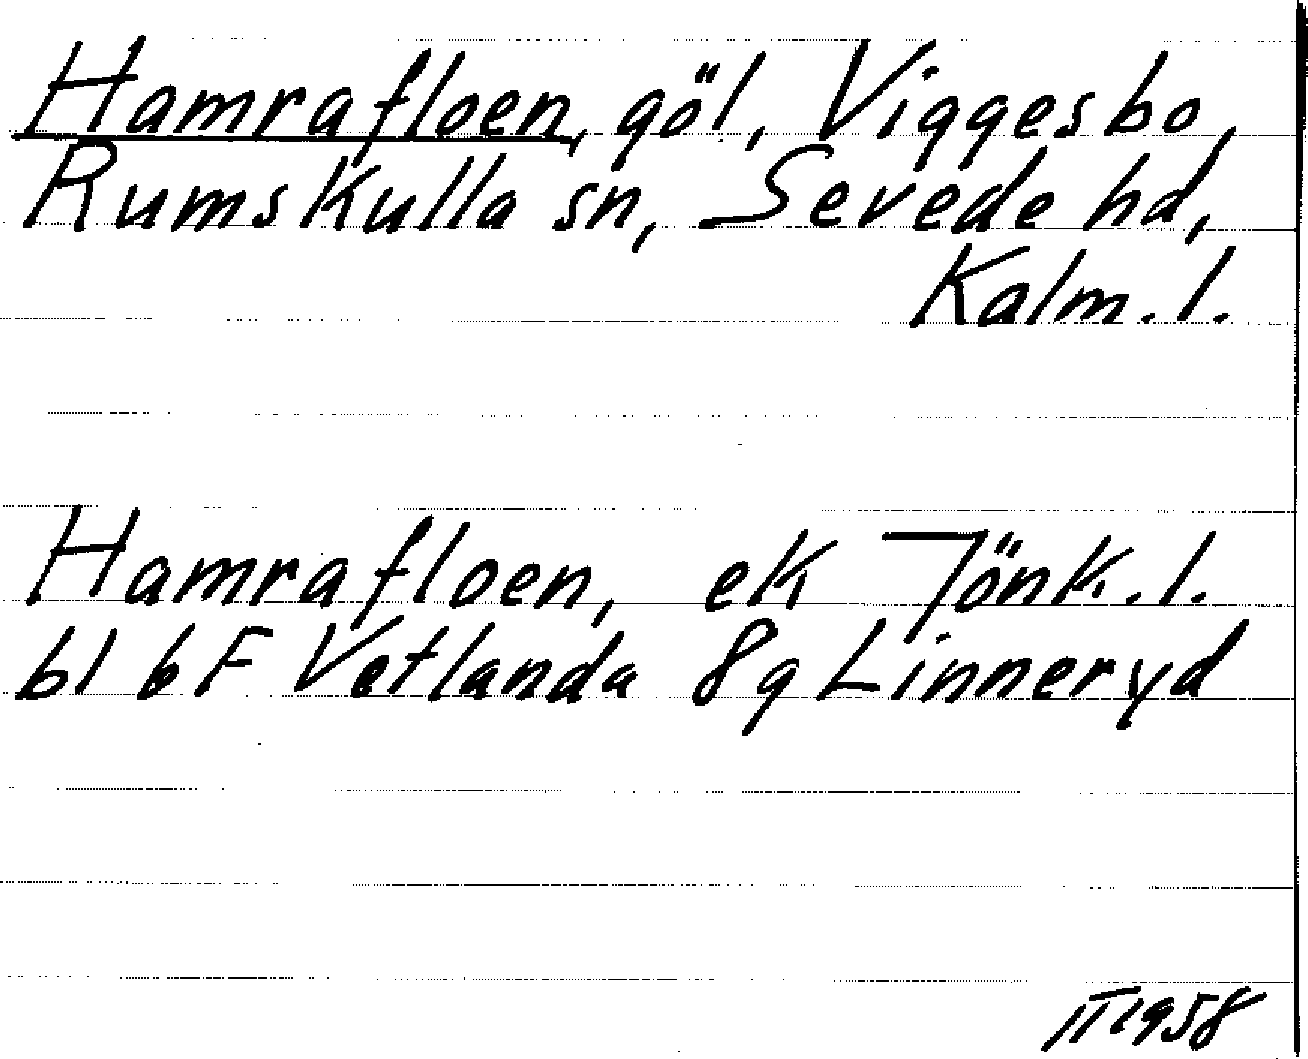 Hamrafloen, göl, Viggesbo,
Rumskulla sn, Sevede hd,
Kalm. l.
Hamrafloen, ek Jönk. l.
bl 6 F Vetlanda 8g Linneryd
IT 1958